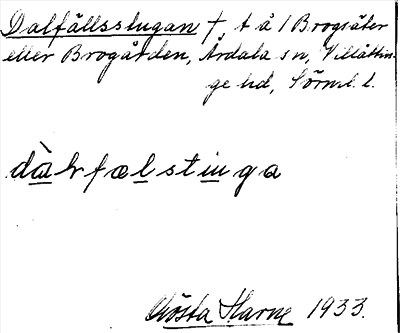 Dalfällsstugan †, t å 1 Brogsäter
eller Brogården, Årdala sn, Villåttin-
ge hd, Sörml. l.
dàlfælstinga
Gösta Harne 1933.